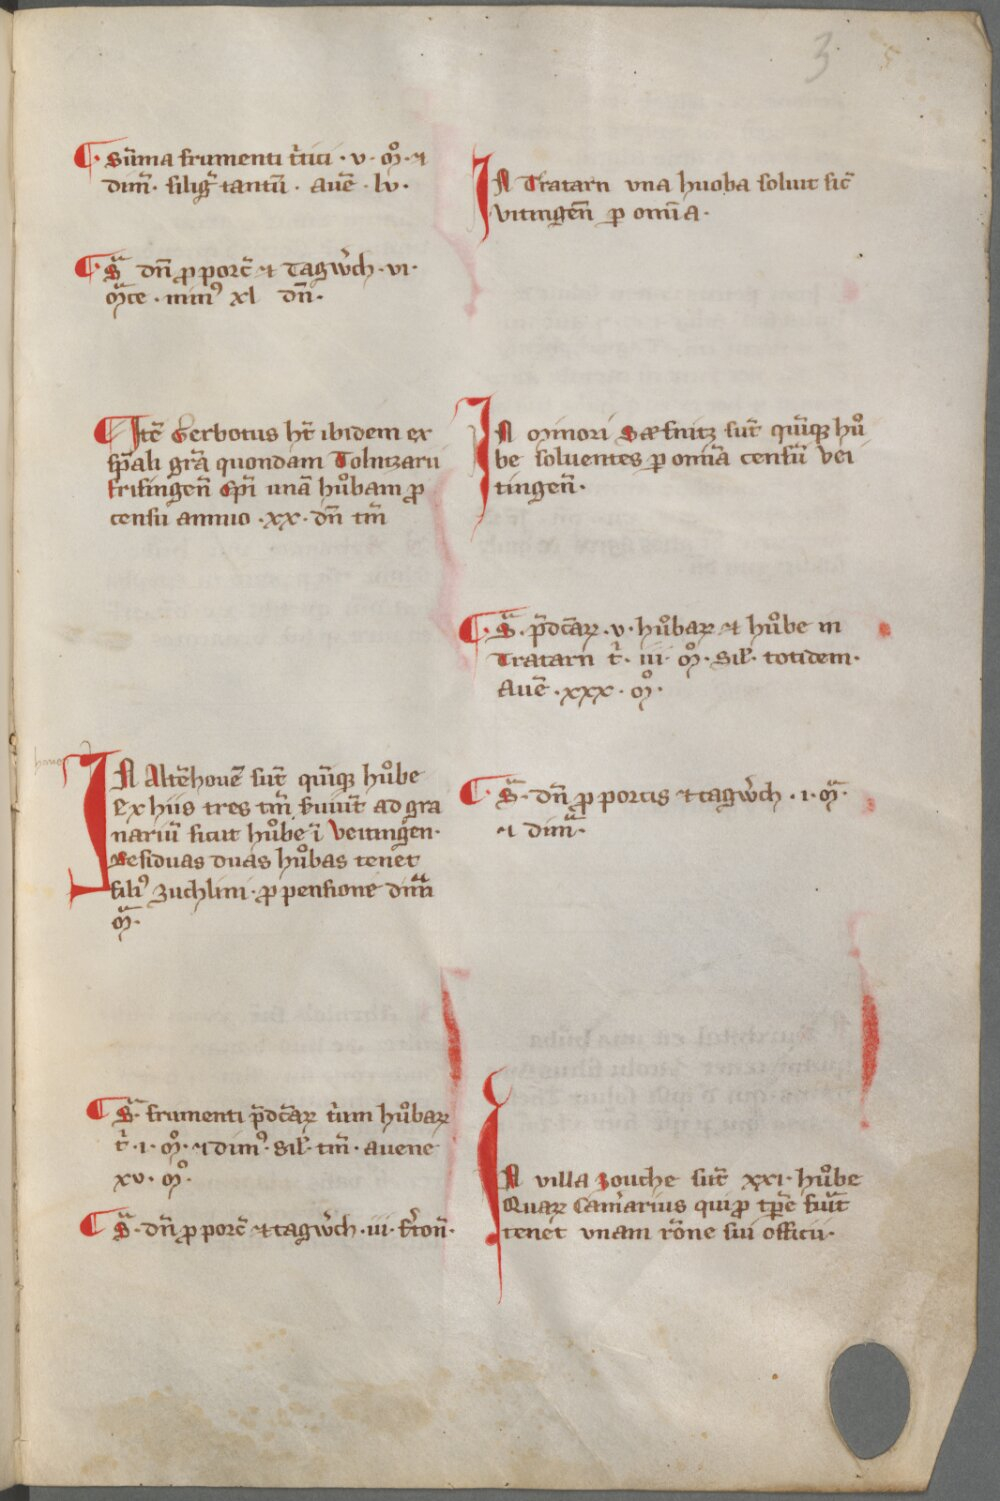 3
Sum̄a frumenti t̄tici · v · mͦ · et
dim̄ · silig̃ tantū · avē · lv ·
S̄ᵃ dn̄ p̱ porc̃ et Tagw̓ch · vi ·
mᵃce · min⁹ xl dn̄ ·
Itē Gerbotus ht̄ ibidem ex
sp̄ali gr̄a quondam Tolntzarii
frisingen̄ ep̄i unā huͦbam p̱
censu annuo · xx · dn̄ tm̄
IN Altēhovē sut̄ quīqꝫ huͦbe
Ex hiis tres tm̄ ẜviūt ad gra
nariū sicut huͦbe ī Veitingen ·
Residuas duas huͦbas tenet
fili⁹ zuchlini · p̱ pensione dim̄
mᵃ ·
Sᵃ frumenti p̄dc̄aꝝ t̓um huͦbaꝝ
t̓ · i · mͦ · et dim⁹ · Sil̓ · tm̄ · avene
xv · mͦ ·
Sᵃ · dn̄ p̱ porc̃ et tagw̓ch · iii · ẜton̄ ·
IN Tratarn una huoba soluit sic̄
vitingen̄ ꝑ om̄ia ·
IN minori Sæfnitz sut̄ quīqꝫ huͦ
be soluentes ꝑ om̄ia censū vei
tingen̄ ·
Sᵃ · p̄dc̄aꝝ · v · huͦbaꝝ et huͦbe in
Tratarn t̓ · iii · mͦ · Sil̓ · totidem ·
Avē · xxx · mͦ ·
Sᵃ · dn̄ p̱ porcis et tagw̓ch · i · mᵃ ·
et dimᵃ ·
IN villa Zouche sut̄ xxi · huͦbe
Quaꝝ Cam̓arius qui p̱ tp̄e fūit
tenet unam rōne sui officii ·